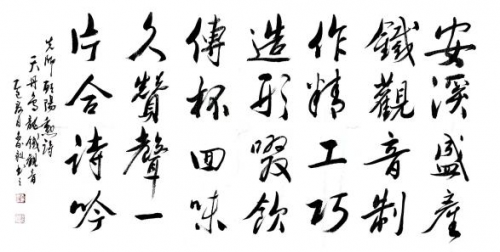 安溪盛產
鐵觀音制
作精工巧
造形啜飲
傳杯回味
久贊聲一
片合詩吟
先师陽詩
天丹烏龍鐵觀音